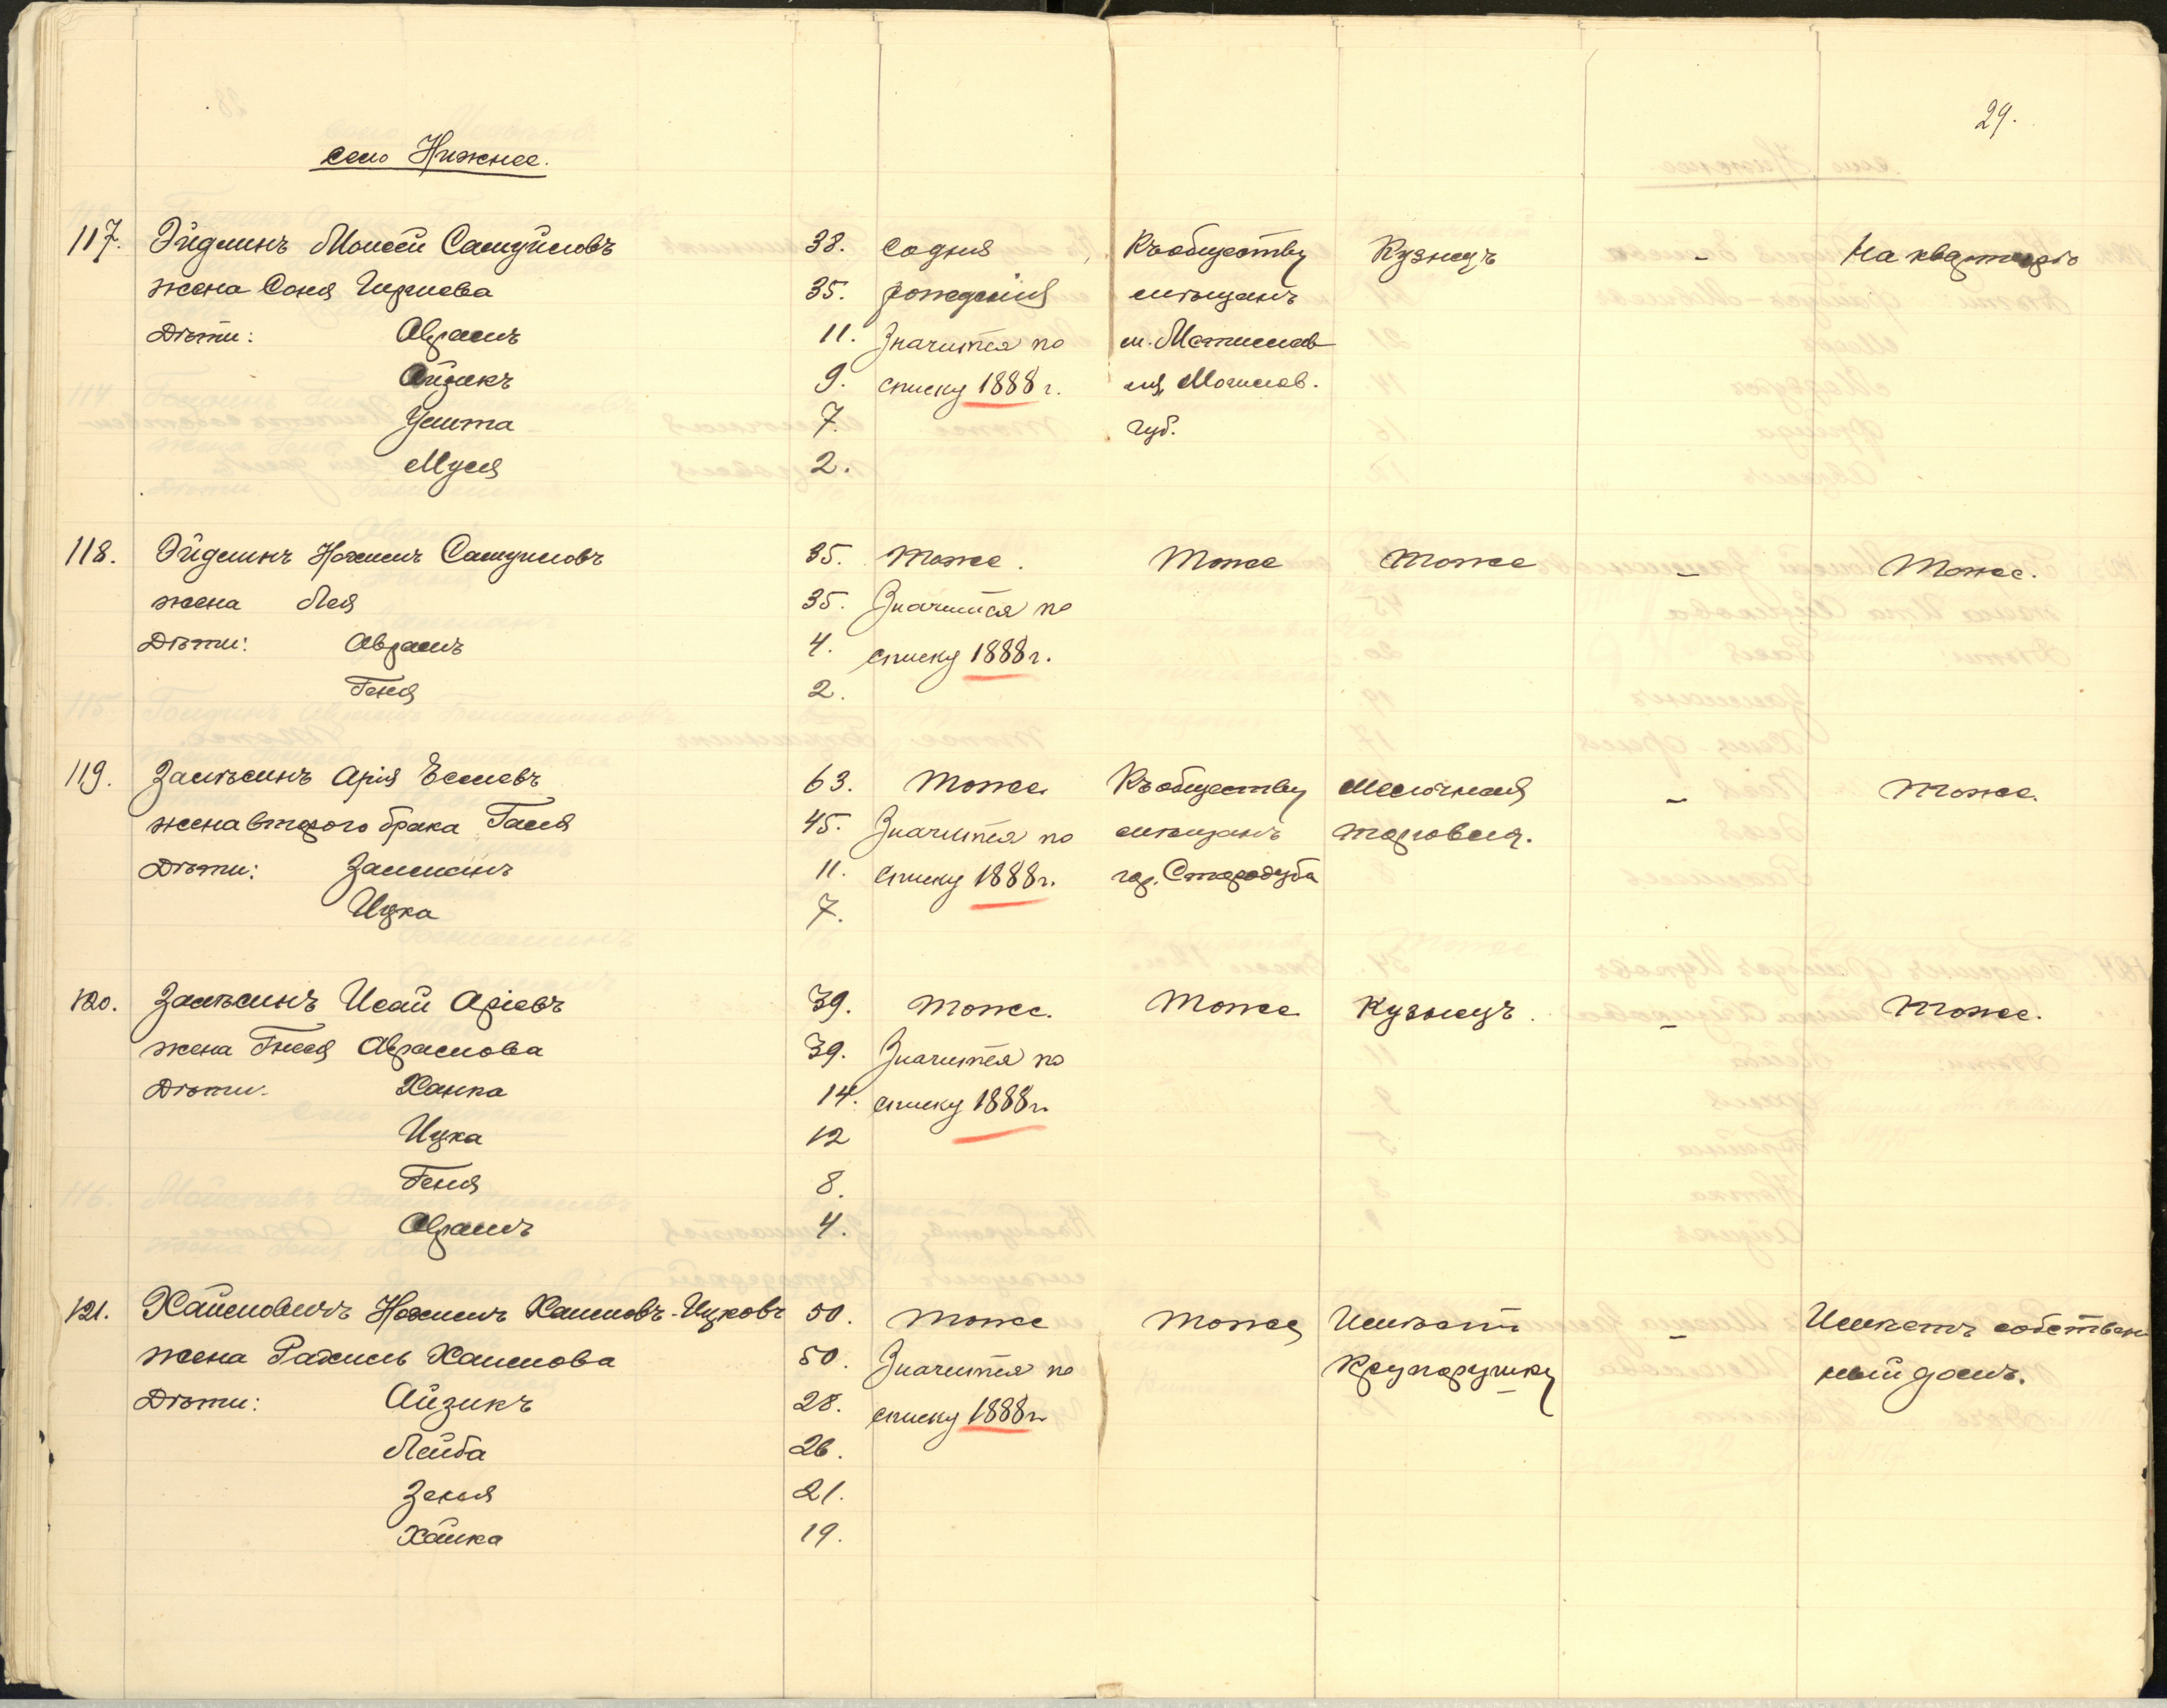 29.
село Нижнее.
117. Эйдлинъ Моисей Самуйловъ 38. содня Къ обществу Кузнецъ - На квартирѣ
жена Соня Гиршева 35. рожденія мѣщанъ
Дѣти: Абрамъ 11. Значится по м. Мстислав
Айзикъ 9. списку 1888 г. ля, Могилев.
7. губ.
Муся 2.
118. Эйдлинъ Нохимъ Самуиловъ 35. тоже. Тоже тоже - Тоже.
жена Лея 35. Значится по
Дѣти: Абрамъ 4. списку 1888 г.
Геня 2.
119. Залѣсинъ Арія 63. тоже Къ обществу мелочная - тоже.
жена второго брака Гася 45. Значится по мѣщанъ торговля.
Дѣти: Залманъ 11. списку 1888 г. гор. Стародуба
Ицка 7.
120. Залѣсинъ Исай Аріевъ 39. тоже. тоже Кузнецъ. - тоже.
жена Гнеся Абрамова 39. Значится по
Дѣти. Ханка 14. списку 1888 г.
Ицка 12
Геня 8.
Абрамъ 4.
121. Хаймовичъ Нохимъ Хаимовъ-Ицковъ 50. тоже тоже Имѣетъ - Имѣетъ собствен
жена Рахиль Хаимова 50. Значится по Крупорушку ный домъ.
Дѣти: Айзикъ 28. списку 1888 г.
Лейба 26.
21.
Хайка 19.